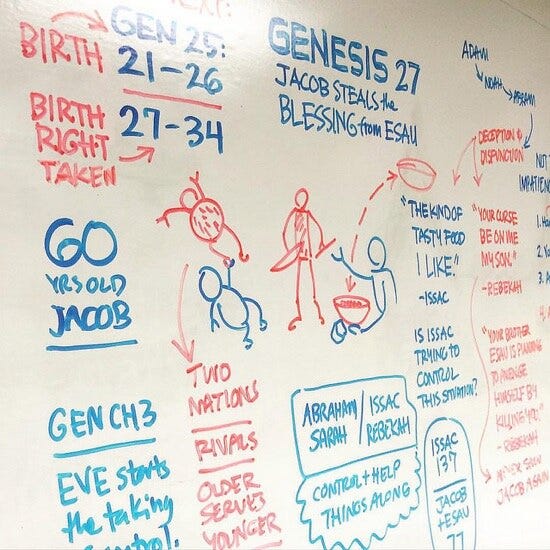 NEXT:
BIRTH
GEN 25:
21-26
BIRTH
RIGHT
TAKEN
27-34
GENESIS 27
JACOB STEALS the
BLESSING from ESAU
ADAM
NOAH
ABRAM
DECEPTION +
DISFUNCTION
60
YRS OLD
JACOB
"THE KIND OF
TASTY FOOD
I LIKE."
-ISSAC
IS ISSAC
TRYING TO
CONTROL
THIS SITUATION?
"YOUR CURSE
BE ON ME
MY SON."
-REBEKAH
"YOUR BROTHER
ESAU IS PLANNING
TO AVENGE
HIMSELF BY
KILLING YOU."
-REBEKAH
NEVER SEEN
JACOB AGAIN
GEN CH3
EVE starts
the taking
control.
TWO
NATIONS
RIVALS
OLDER
SERVES
YOUNGER
ABRAHAM/ISSAC
SARAH/REBEKAH
CONTROL + HELP
THINGS ALONG
ISSAC
137
JACOB
+ESAU
77
1.
2.
3.
4.